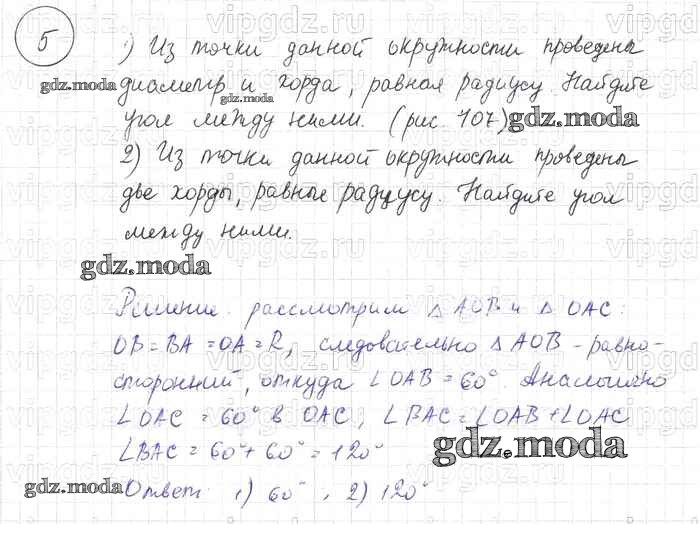 5
1) Из точки данной окружности проведены
диаметр и хорда, равная радиусу. Найдите
угол между ними. (рис. 107)
2) Из точки данной окружности проведены
две хорды, равные радиусу. Найдите угол
между ними.
Решение. рассмотрим △ AOB и △ OAC:
OB = BA = OA = R, следовательно △ AOB - равно-
сторонний, откуда ∠OAB = 60°. Аналогично
∠OAC = 60° в OAC, ∠BAC = ∠OAB + ∠OAC
∠BAC = 60° + 60° = 120°
Ответ: 1) 60°, 2) 120°
gdz.moda
gdz.moda
gdz.moda
gdz.moda
gdz.moda
gdz.moda
vipgdz.ru